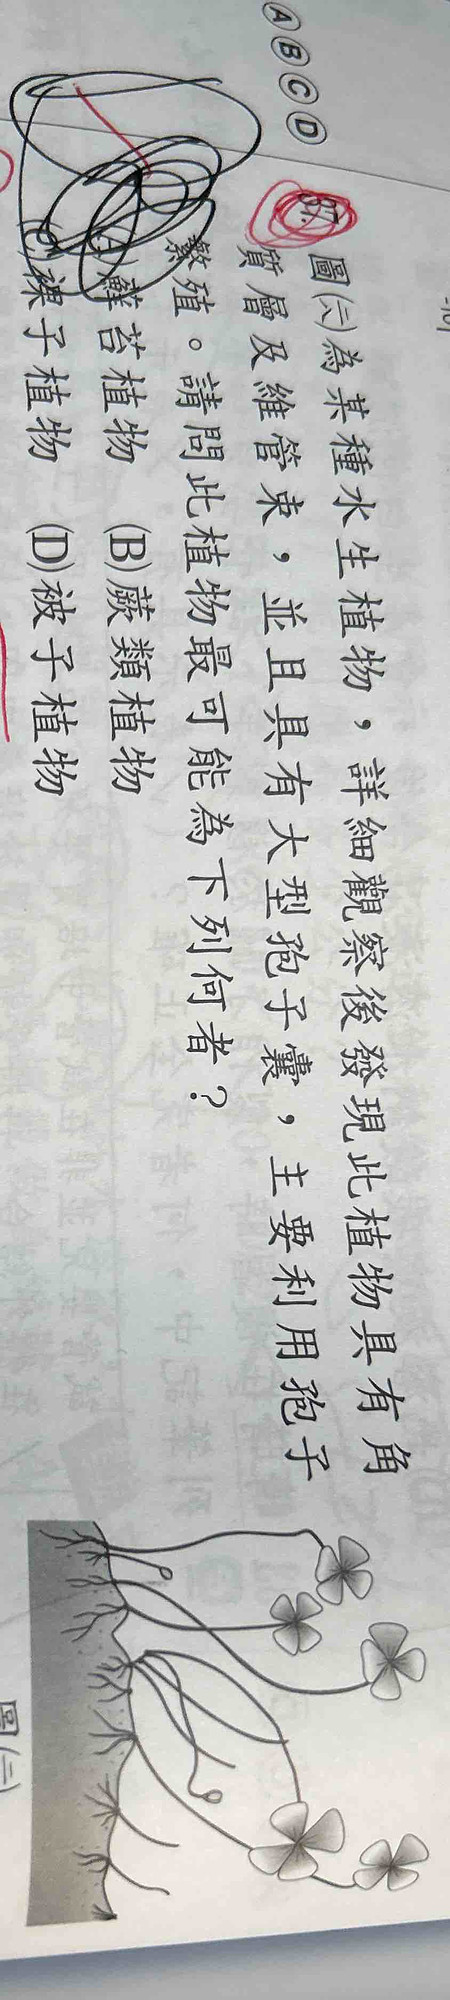 ⒶⒷⒸⒹ
37.
圖㈥為某種水生植物，詳細觀察後發現此植物具有角
質層及維管束，並且具有大型孢子囊，主要利用孢子
繁殖。請問此植物最可能為下列何者？
(A)蘚苔植物　(B)蕨類植物
(C)裸子植物　(D)被子植物